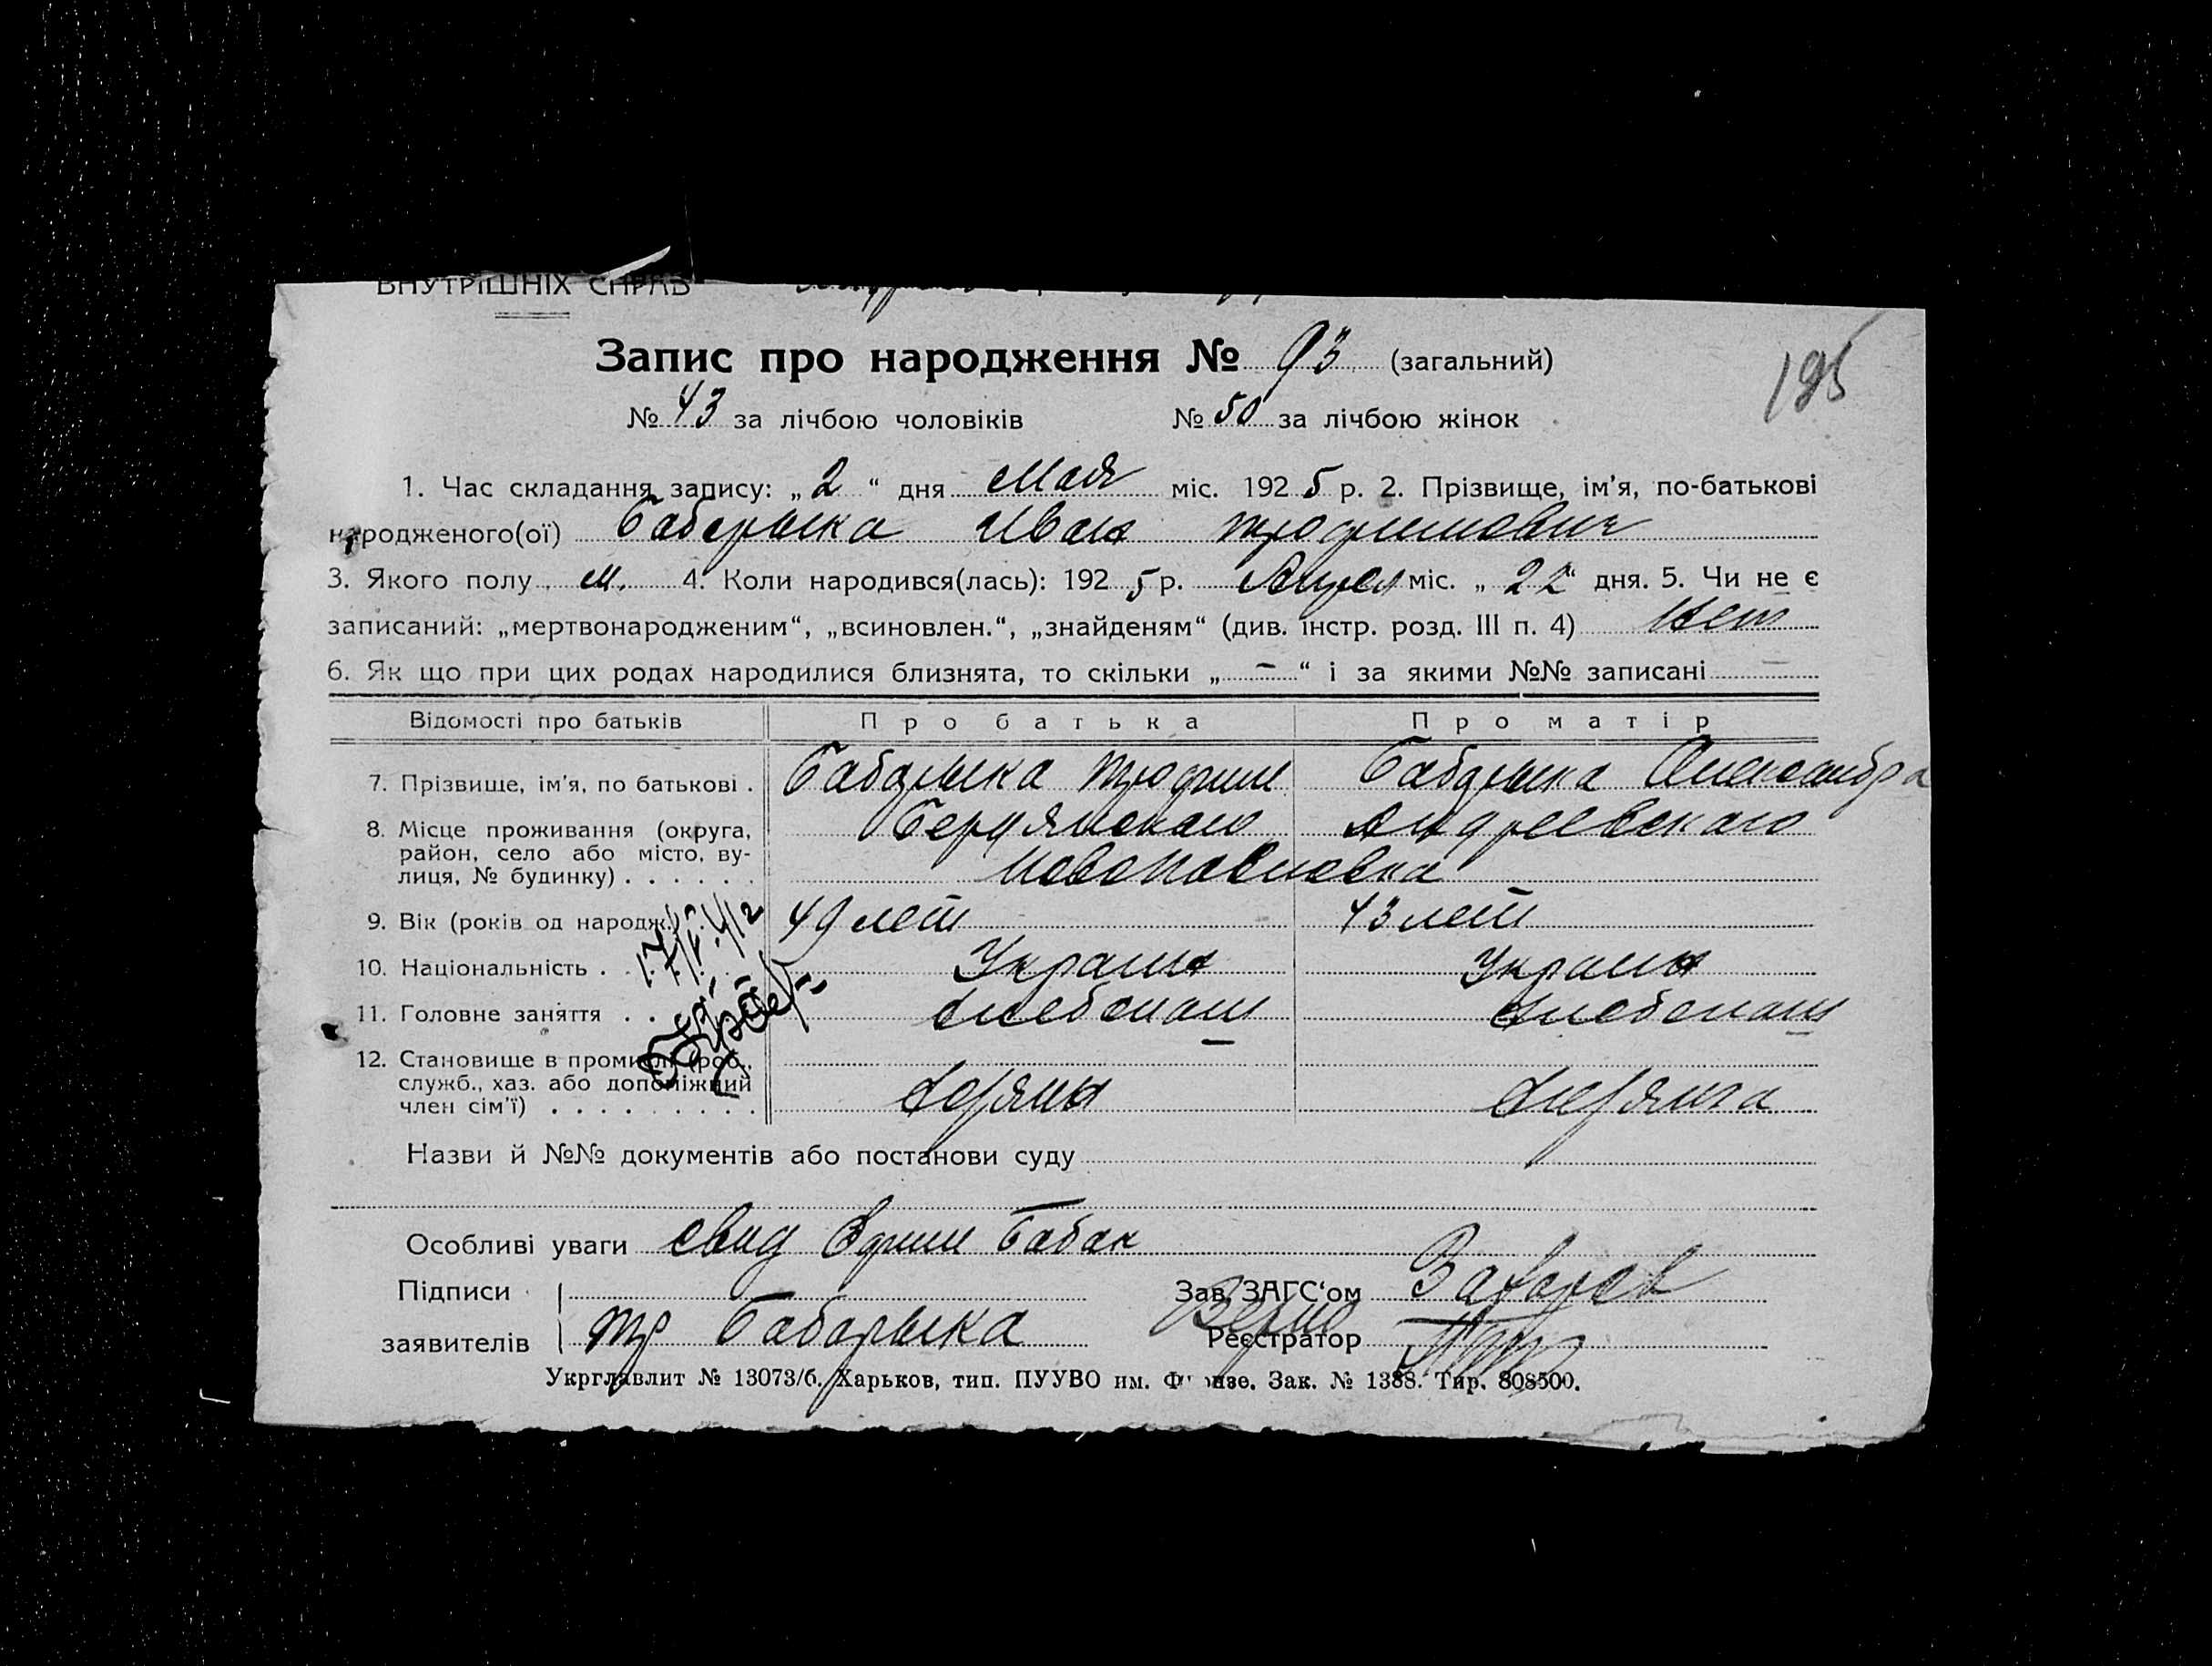 ВНУТРІШНІХ СПРАВ
Запис про народження № 93 (загальний)
195
№ 43 за лічбою чоловіків № 50 за лічбою жінок
1. Час складання запису: „ 2 “ дня Мая міс. 1925 р. 2. Прізвище, ім'я, по-батькові
народженого(ої) Бабарыка Иван Трофимович
3. Якого полу м. 4. Коли народився(лась): 1925 р. Апрел міс. „ 22 “ дня. 5. Чи не є
записаний: „мертвонародженим“, „всиновлен.“, „знайденям“ (див. інстр. розд. III п. 4) Нет
6. Як що при цих родах народилися близнята, то скільки „ – “ і за якими №№ записані –
Відомості про батьків Про батька Про матір
7. Прізвище, ім'я, по батькові . Бабарыка Трофим Бабарыка Александра
8. Місце проживання (округа, Бердянского Андреевского
район, село або місто, ву-
лиця, № будинку) . . . . . . Новопавловка
9. Вік (років од народж.) 49 лет 43 лет
10. Національність . Украин Украин
11. Головне заняття . . Хлебопаш Хлебопаш
12. Становище в промислі (роб.,
служб., хаз. або допоміжний
член сім'ї) . . . . . . . . . Хозяин Хозяйка
Назви й №№ документів або постанови суду
Особливі уваги свид Ефим Бабак
Підписи Зав. ЗАГС'ом
заявителів Тр Бабарыка Верно Реєстратор
Укрглавлит № 13073/б. Харьков, тип. ПУУВО им. Фрунзе. Зак. № 1388. Тир. 808500.